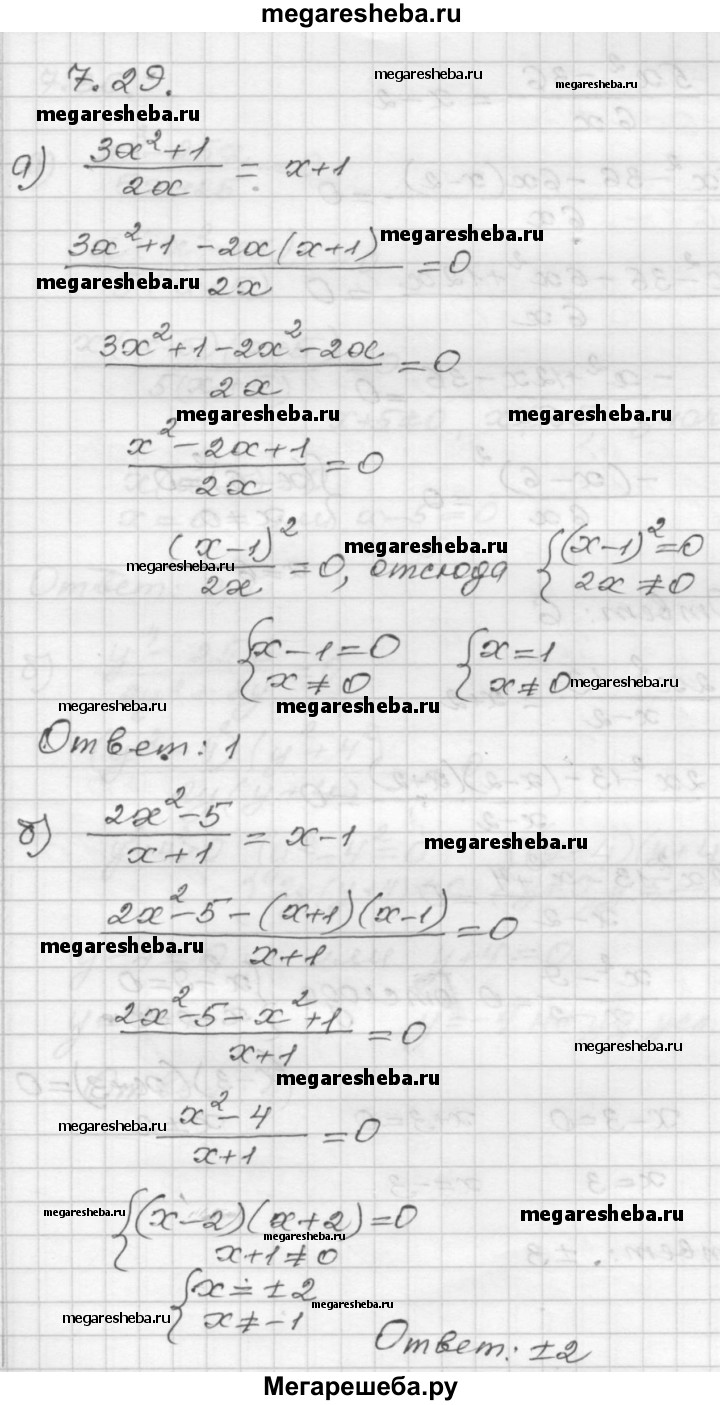 megaresheba.ru
7.29.
megaresheba.ru
megaresheba.ru
megaresheba.ru
а) (3x²+1)/(2x) = x+1
(3x²+1-2x(x+1))/(2x) = 0
megaresheba.ru
megaresheba.ru
(3x²+1-2x²-2x)/(2x) = 0
megaresheba.ru
megaresheba.ru
(x²-2x+1)/(2x) = 0
megaresheba.ru
megaresheba.ru
(x-1)²/(2x) = 0, отсюда { (x-1)²=0
2x≠0
{ x-1=0
x≠0
{ x=1
x≠0
megaresheba.ru
megaresheba.ru
megaresheba.ru
Ответ: 1
б) (2x²-5)/(x+1) = x-1
megaresheba.ru
(2x²-5-(x+1)(x-1))/(x+1) = 0
megaresheba.ru
(2x²-5-x²+1)/(x+1) = 0
megaresheba.ru
megaresheba.ru
(x²-4)/(x+1) = 0
megaresheba.ru
{ (x-2)(x+2)=0
x+1≠0
megaresheba.ru
megaresheba.ru
megaresheba.ru
{ x=±2
x≠-1
megaresheba.ru
megaresheba.ru
Ответ: ±2
Мегарешеба.ру